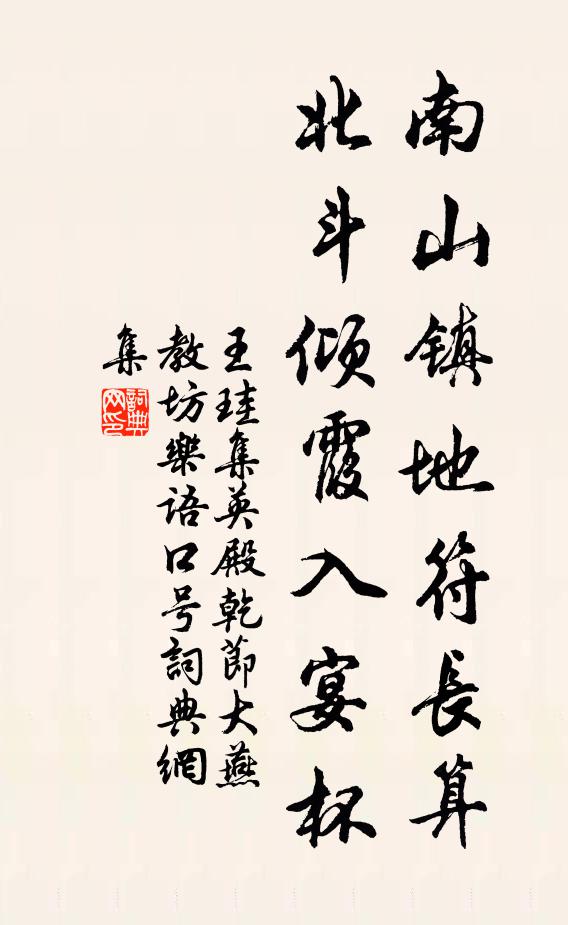 南山鎮地符長算
北斗傾霞入宴杯
王珪集英殿乾節大燕
教坊樂語口号詞典網
集
詞典
网印